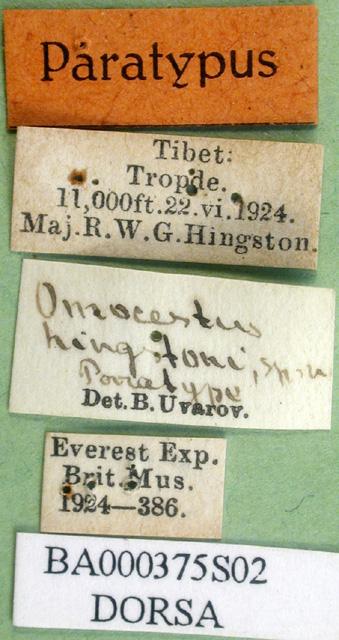 Paratypus
Tibet:
Tropde.
11,000ft.22.vi.1924.
Maj.R.W.G.Hingston.
Omocestus
hingstoni, sp. n.
Paratype
Det.B.Uvarov.
Everest Exp.
Brit.Mus.
1924—386.
BA000375S02
DORSA